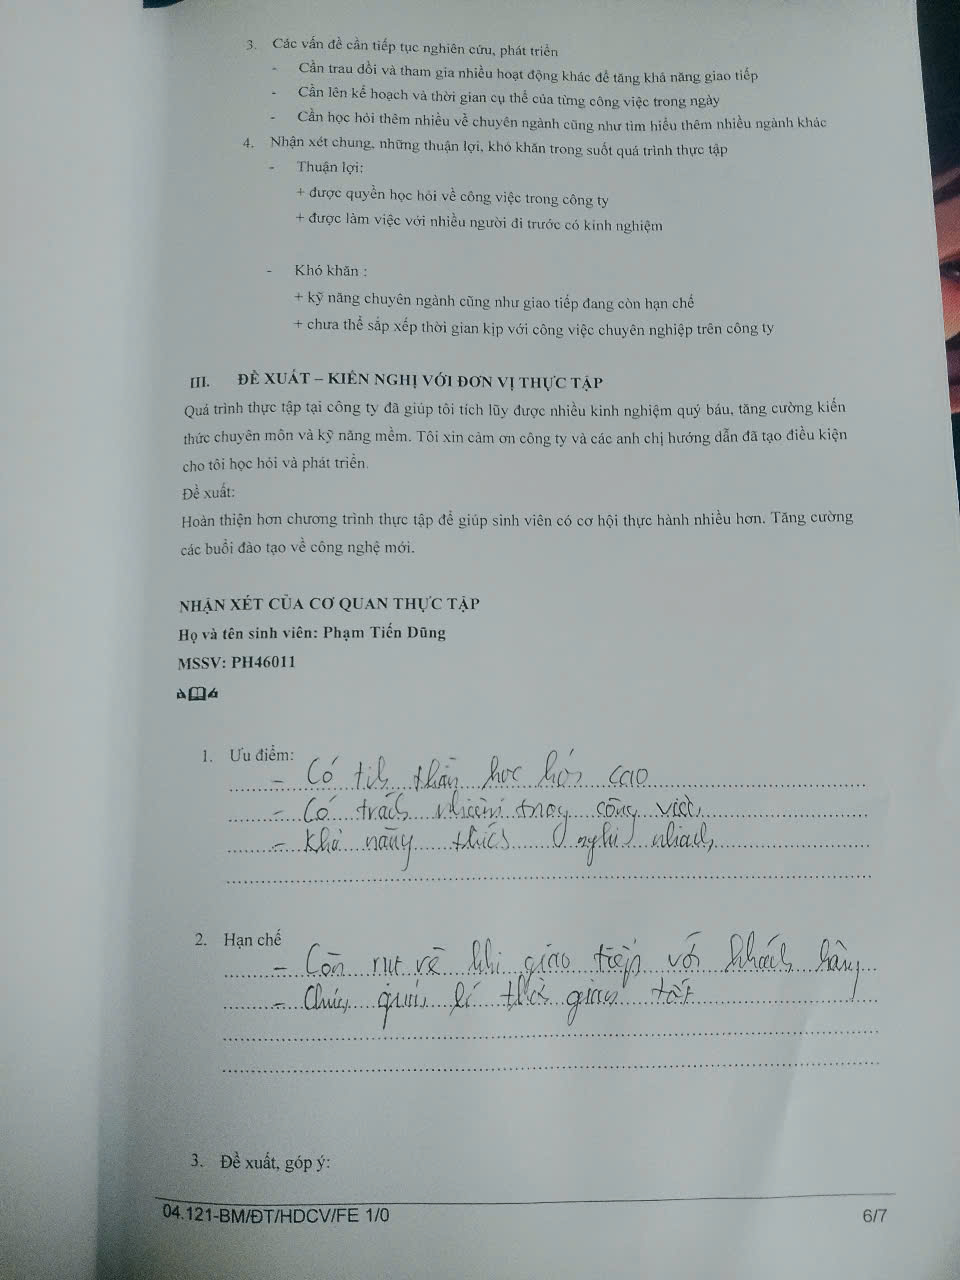 3. Các vấn đề cần tiếp tục nghiên cứu, phát triển
- Cần trau dồi và tham gia nhiều hoạt động khác để tăng khả năng giao tiếp
- Cần lên kế hoạch và thời gian cụ thể của từng công việc trong ngày
- Cần học hỏi thêm nhiều về chuyên ngành cũng như tìm hiểu thêm nhiều ngành khác
4. Nhận xét chung, những thuận lợi, khó khăn trong suốt quá trình thực tập
- Thuận lợi:
+ được quyền học hỏi về công việc trong công ty
+ được làm việc với nhiều người đi trước có kinh nghiệm
- Khó khăn :
+ kỹ năng chuyên ngành cũng như giao tiếp đang còn hạn chế
+ chưa thể sắp xếp thời gian kịp với công việc chuyên nghiệp trên công ty
III. ĐỀ XUẤT – KIẾN NGHỊ VỚI ĐƠN VỊ THỰC TẬP
Quá trình thực tập tại công ty đã giúp tôi tích lũy được nhiều kinh nghiệm quý báu, tăng cường kiến
thức chuyên môn và kỹ năng mềm. Tôi xin cảm ơn công ty và các anh chị hướng dẫn đã tạo điều kiện
cho tôi học hỏi và phát triển.
Đề xuất:
Hoàn thiện hơn chương trình thực tập để giúp sinh viên có cơ hội thực hành nhiều hơn. Tăng cường
các buổi đào tạo về công nghệ mới.
NHẬN XÉT CỦA CƠ QUAN THỰC TẬP
Họ và tên sinh viên: Phạm Tiến Dũng
MSSV: PH46011
1. Ưu điểm:
- Có tinh thần học hỏi cao
- Có trách nhiệm trong công việc
- Khả năng thích nghi nhanh
2. Hạn chế
- Còn rụt rè khi giao tiếp với khách hàng
- Chưa quản lí thời gian tốt
3. Đề xuất, góp ý:
04.121-BM/ĐT/HDCV/FE 1/0
6/7